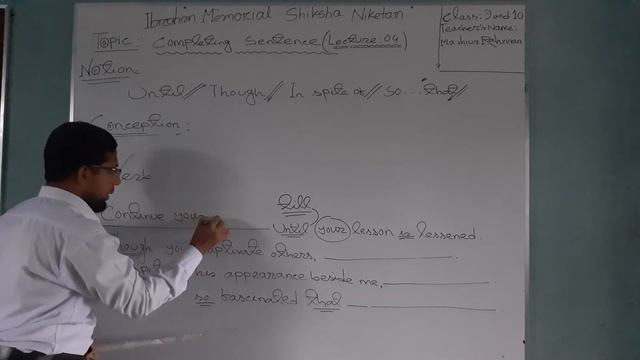 Ibrahim Memorial Shiksha Niketan
Class: 9 and 10
Teacher's Name:
Mashiur Rahman
Topic: Completing Sentence (Lecture: 04)
Notion
Until // Though // In spite of // So... that //
Conception:
till
Continue your until your lesson is lessened.
you captivate others,
his appearance beside me,
so fascinated that